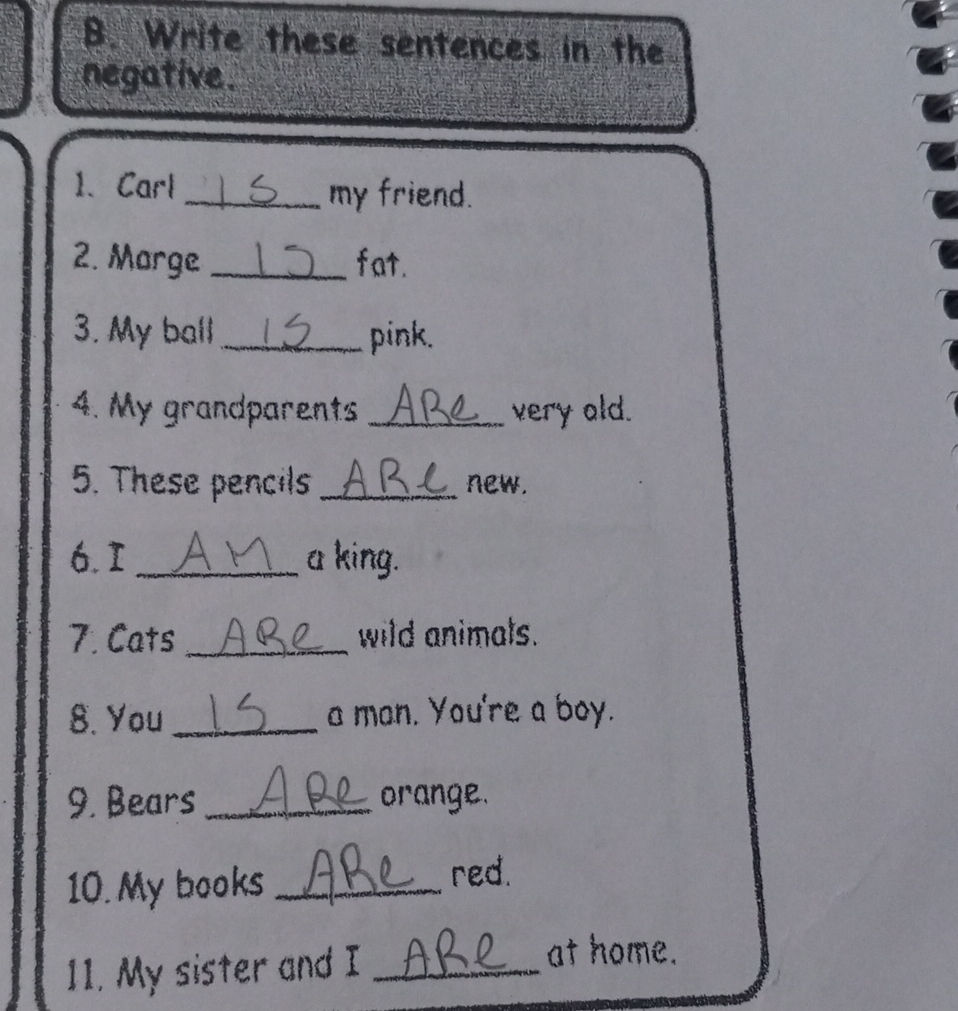 B. Write these sentences in the
negative.
1. Carl IS my friend.
2. Marge IS fat.
3. My ball IS pink.
4. My grandparents ARe very old.
5. These pencils ARe new.
6. I AM a king.
7. Cats ARe wild animals.
8. You IS a man. You're a boy.
9. Bears ARe orange.
10. My books ARe red.
11. My sister and I ARe at home.